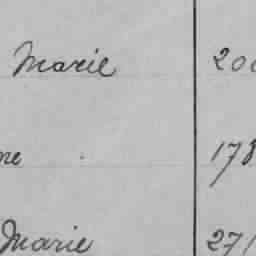 Marie 200
ne 178
Marie 271